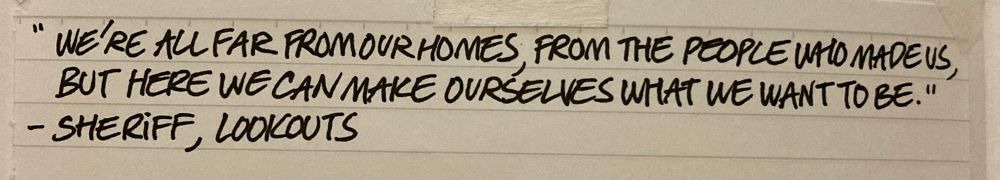 " WE'RE ALL FAR FROM OUR HOMES, FROM THE PEOPLE WHO MADE US,
BUT HERE WE CAN MAKE OURSELVES WHAT WE WANT TO BE."
- SHERiFF, LOOKOUTS